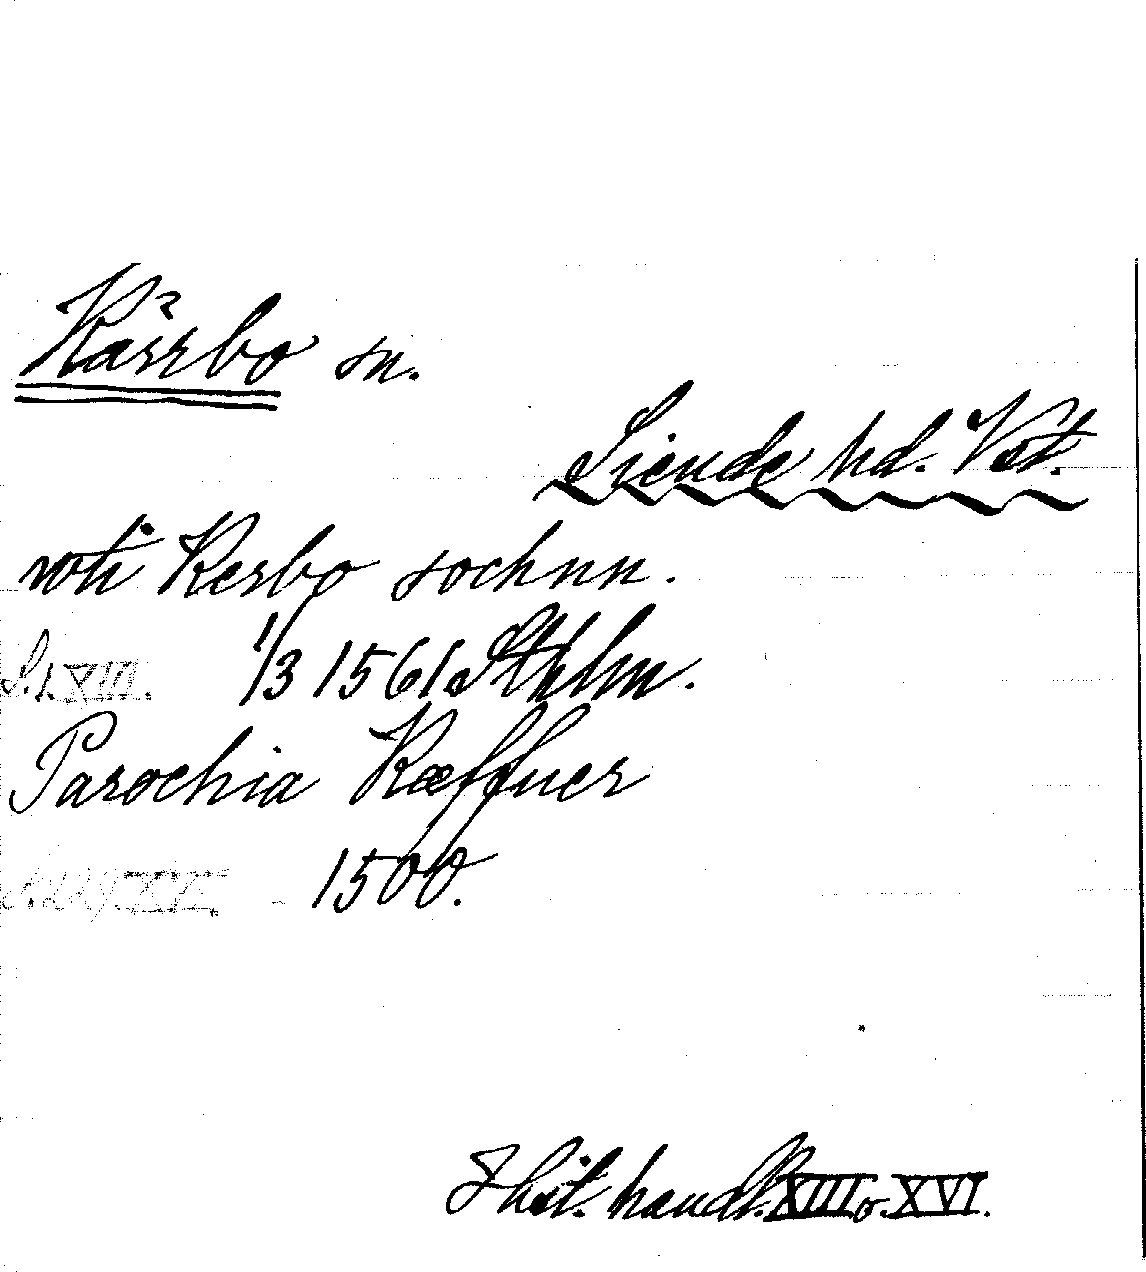 Kärrbo sn.
Siende hd. Vst.
wti Kerbo sochnn.
S. 1. XIII. 1/3 1561 Sthlm.
Parochia Kæffner
XVI. 1500.
Hist. handl. XIII o. XVI.